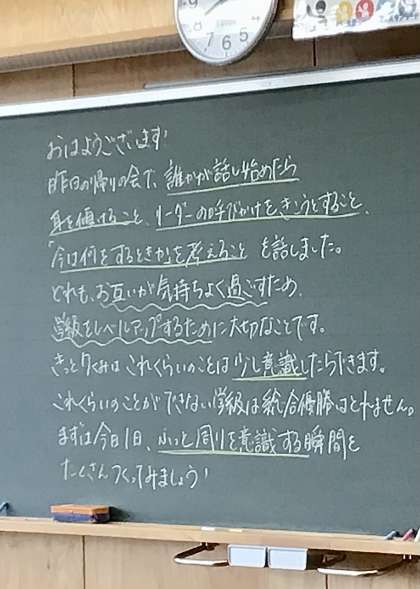 おはようございます!
昨日の帰りの会で、誰かが話し始めたら
身を傾けること、リーダーの呼びかけをきこうとすること、
「今は何をするときか」を考えること を話しました。
どれも、お互いが気持ちよく過ごすため、
学級をレベルアップするために大切なことです。
きっと くみは これくらいのことは少し意識したらできます。
これくらいのことができない学級は総合優勝はとれません。
まずは今日1日、ふっと周りを意識する瞬間を
たくさんつくってみましょう!
9
8
7
6
5